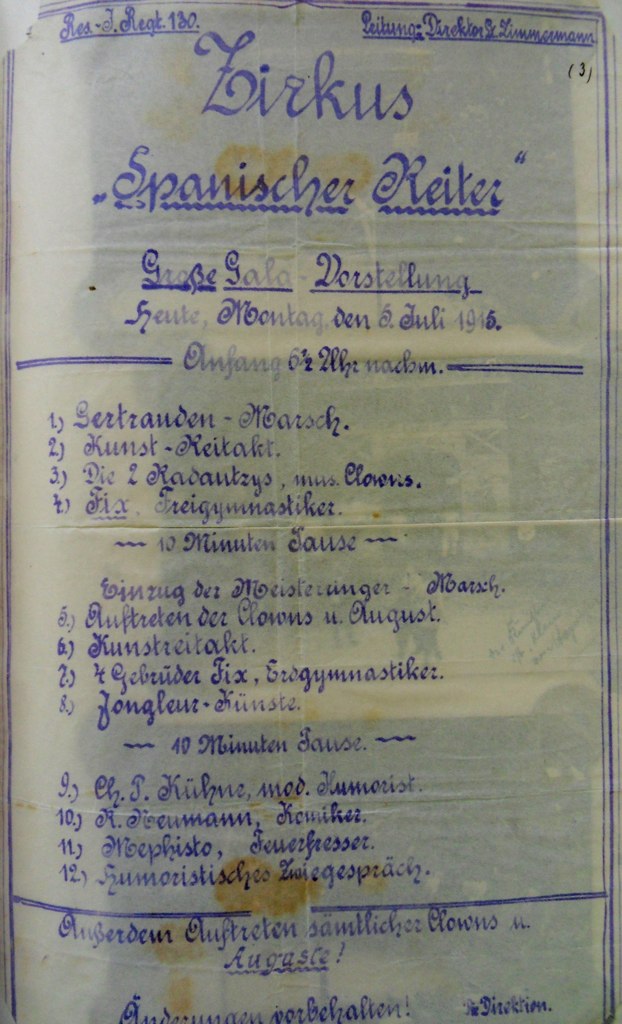 Res.-I. Regt. 130.
Leitung: Direktor Zimmermann
(3)
Zirkus
„Spanischer Reiter“
Große Gala-Vorstellung
Heute, Montag, den 5. Juli 1915.
Anfang 6½ Uhr nachm.
1.) Gertrauden-Marsch.
2.) Kunst-Reitakt.
3.) Die 2 Radautzys, mus. Clowns.
4.) Fix, Freigymnastiker.
10 Minuten Pause
Einzug der Meistersinger - Marsch.
5.) Auftreten der Clowns u. August.
6.) Kunstreitakt.
7.) 4 Gebrüder Fix, Erdgymnastiker.
8.) Jongleur-Künste.
10 Minuten Pause.
9.) Ch. P. Kühne, mod. Humorist.
10.) R. Neumann, Komiker.
11.) Mephisto, Feuerfresser.
12.) Humoristisches Zwiegespräch.
Außerdem Auftreten sämtlicher Clowns u.
Auguste!
Änderungen vorbehalten!
Die Direktion.